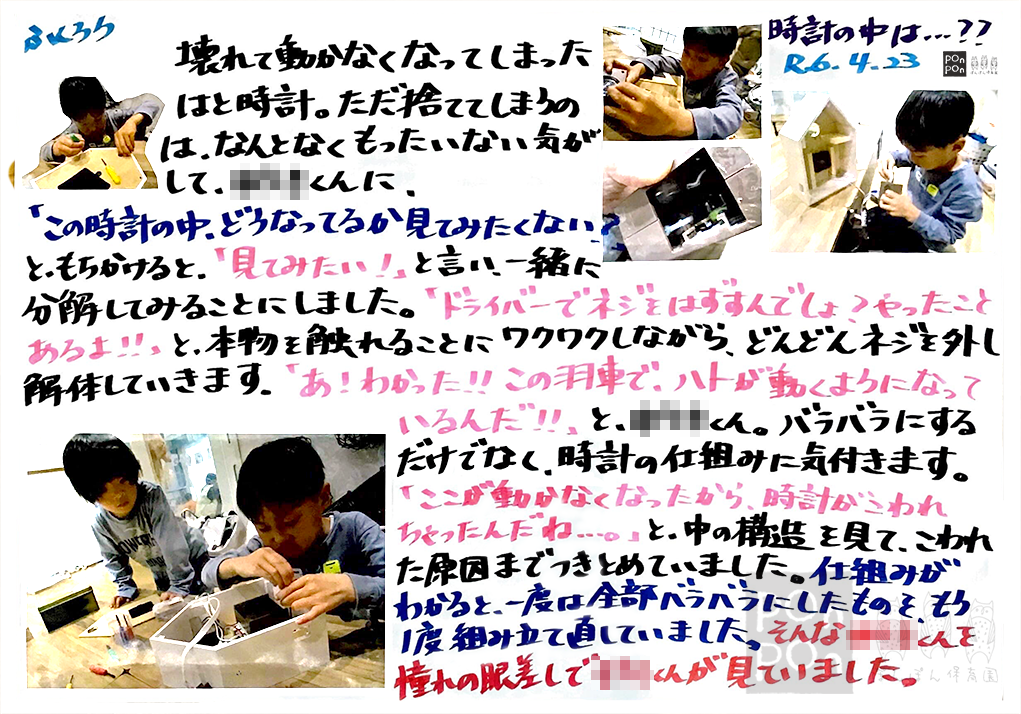 ふくろう
時計の中は…??
R6.4.23
pon
pon
壊れて動かなくなってしまった
はと時計。ただ捨ててしまうの
は、なんとなくもったいない気が
して、くんに、
「この時計の中、どうなってるか見てみたくない?
と、もちかけると、「見てみたい!」と言い、一緒に
分解してみることにしました。「ドライバーでネジをはずすんでしょ?やったこと
あるよ!!」と、本物を触れることにワクワクしながら、どんどんネジを外し
解体していきます。「あ!わかった!!この羽車で、ハトが動くようになって
いるんだ!!」と、くん。バラバラにする
だけでなく、時計の仕組みに気付きます。
「ここが動かなくなったから、時計がこわれ
ちゃったんだね…。」と、中の構造を見て、こわれ
た原因までつきとめていました。仕組みが
わかると、一度は全部バラバラにしたものを、もう
1度組み立て直していました。そんなくんを
憧れの眼差しでくんが見ていました。
pon
pon
ぽん保育園